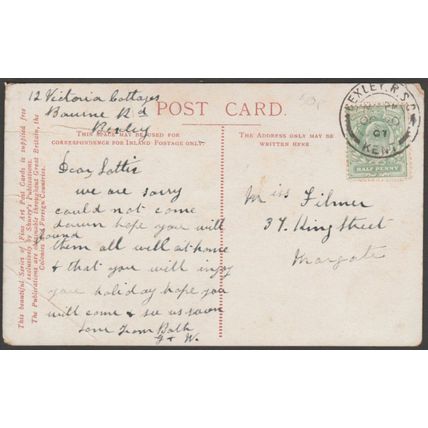 12 Victoria Cottages
Bourne Rd
Bexley
POST CARD.
THIS SPACE MAY BE USED FOR
CORRESPONDENCE FOR INLAND POSTAGE ONLY.
THE ADDRESS ONLY MAY BE
WRITTEN HERE.
BEXLEY. R.S.O.
07
KENT
HALF PENNY
This beautiful Series of Fine Art Post Cards is supplied free
exclusively by Shurey's Publications.
The Publications are obtainable throughout Great Britain, the
Colonies and Foreign Countries.
Dear Lottie
we are sorry
could not come
down hope you will
found
them all well at home
& that you will injoy
your holiday hope you
will come & see us soon
love from Both
& W.
Miss Filmer
37 King Street
Margate